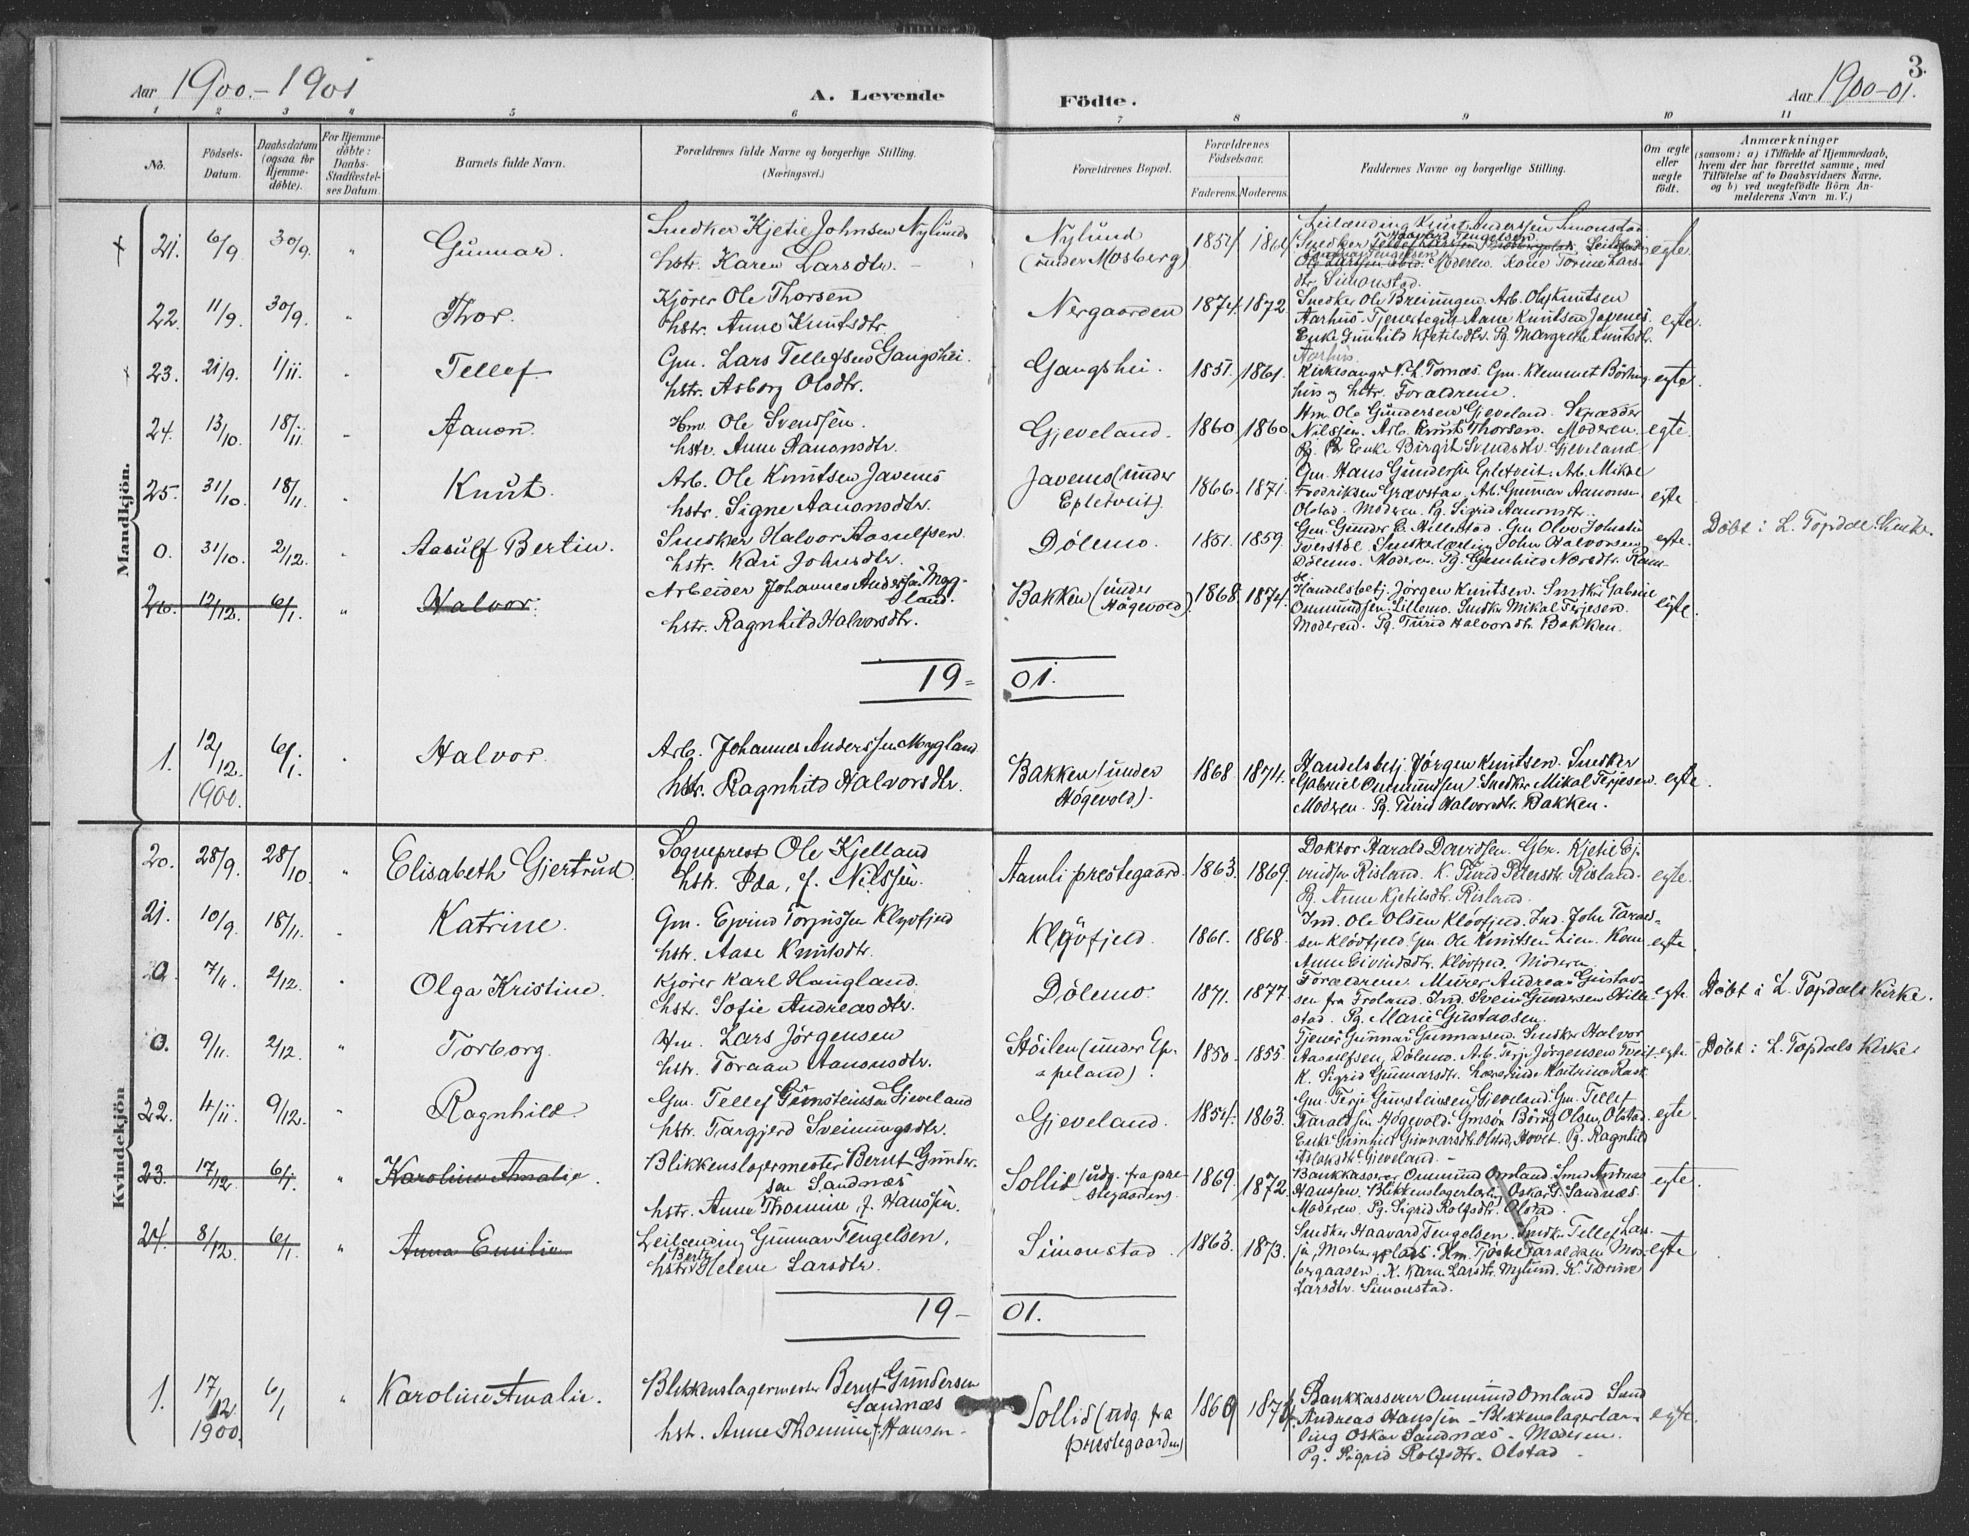 Aar 1900.-1901
A. Levende
Födte.
Aar 1900-01.
3.
1 2 3 4 5 6 7 8 9 10 11
No.
Födsels-
Datum.
Daabsdatum
(ogsaa for
Hjemme-
döbte).
For Hjemme-
döbte:
Daabs-
Stadfæstel-
ses Datum.
Barnets fulde Navn.
Forældrenes fulde Navne og borgerlige Stilling.
(Næringsvei.)
Forældrenes Bopæl.
Forældrenes
Födselsaar.
Faderens. Moderens.
Faddernes Navne og borgerlige Stilling.
Om ægte
eller
uægte
födt.
Anmærkninger
(saasom: a) i Tilfælde af Hjemmedaab,
hvem der har forrettet samme, med
Tilföielse af to Daabsvidners Navne,
og b) ved uægtefödte Börn An-
melderens Navn m.V.)
Mandkjön.
21. 6/9 30/9. " Gunnar.
Snedker Kjetil Johnsen Nylund
hstr. Karen Larsdtr.
Nylund
(under Mosberg)
Leilænding Knut Anderssen Simonstad
Moderen. Kone Torine Lars-
dtr. Simonstad.
egte
22. 11/9. 30/9. " Thor.
Kjörer Ole Thorsen
hstr. Anne Knutsdtr.
Nergaarden 1874. 1872
Snedker Ole Breiungen. Arb. Ole Knutsen
Aarhus. Tjenestegut Aane Knutsen Javenes.
Enke Gunhild Kjetilsdtr. Pg. Margrethe Knutsdtr.
Aarhus.
egte.
23. 21/9. 1/11. Tellef.
Gm. Lars Tellefsen Gangshei.
hstr. Asborg Olsdtr.
Gangshei. 1851. 1861.
Kirkesanger N. L. Tornæs. Gm. Klemmet Börings
hus og hstr. Forældrene.
egte
24. 13/10. 18/11 Aanon.
Hm. Ole Svendsen.
hstr. Anne Aanonsdtr.
Gjeveland. 1860 1860
Hm. Ole Gundersen Gjeveland. Skrædder
Nilssen. Arb. Knut Thorsen. Moderen.
Pg. Enke Birgit Svendsdtr. Gjeveland
egte.
25. 31/10. 18/11. Knut.
Arb. Ole Knutsen Javenes
hstr. Signe Aanonsdtr.
Javenes (under
Epletveit). 1866. 1871.
Gm. Hans Gundersen Epletveit. Arb. Mikal
Fredriksen Grævstad. Arb. Gunnar Aanonsen
Olstad. Moderen. Pg. Sigrid Aanonsdtr.
egte
0. 31/10. 2/12. Aasulf Bertin.
Snedker Halvor Aasulfsen.
hstr. Kari Johnsdtr.
Dölemo. 1851. 1859.
Gm. Gunder G. Hillestad. Gm Olov Johnsen
Tverstöl. Snedkerlærling John Halvorsen
Dölemo. Moderen. Pg. Gunhild Næresdtr. Ram-
se
egte.
Döbt i L. Topdals Kirke.
26. 12/12. 6/1. " Halvor.
Arbeider Johannes Anderssen Myg-
land.
hstr. Ragnhild Halvorsdtr.
Bakken (under
Högevold) 1868. 1874.
Handelsbetj. Jörgen Knutsen. Snedker Gabriel
Ommundsen. Lillemo. Snedker Mikal Terjesen.
Moderen. Pg. Turid Halvorsdtr. Bakken.
egte.
19- 01.
1. 12/12. 1900. 6/1. Halvor.
Arb. Johannes Anderssen Mygland
hstr. Ragnhild Halvorsdtr.
Bakken (under
Högevold). 1868 1874.
Handelsbetj. Jörgen Knutsen. Snedker
Gabriel Ommundsen Snedker Mikal Terjesen
Moderen. Pg. Turid Halvorsdtr. Bakken.
egte.
Kvindekjön
20. 28/9. 28/10. " Elisabeth Gjertrud.
Sogneprest Ole Kjelland
hstr. Ida, f. Nilssen.
Aamli prestegaard. 1863. 1869.
Doktor Harald Davidsen. Gbr. Kjetil Ej-
vindsen Risland. K. Turid Petersdtr. Risland.
Pg. Anne Kjetilsdtr. Risland.
egte.
21. 10/9. 18/11. Katrine.
Gm. Ejvind Torjussen Klövfjeld
hstr. Aase Knutsdtr.
Klövfjeld. 1861. 1868.
Ind. Ole Olsen Klövfjeld. Ind. John Taral-
sen Klövfjeld. Gm. Ole Knutsen Lien. Kone
Anne Eivindsdtr. Klövfjeld. Moderen
egte
0. 7/11 2/12. Olga Kristine.
Kjörer Karl Haugland.
hstr. Sofie Andreasdtr.
Dölemo. 1871. 1877
Forældrene. Murer Andreas Gustav-
sen fra Froland. Ind. Svein Gundersen Hille
stad. Pg. Marie Gustavsen.
egte
Döbt i L. Topdals Kirke.
0. 9/11. 2/12. " Torborg.
Hm. Lars Jörgensen
hstr. Toraan Aanonsdtr.
Höilen (under Ep-
peland). 1850. 1855
Tjener Gunnar Gunnarsen. Snedker Halvor
Aasulfsen, Dölemo. Arb. Terje Jörgensen Tveit.
K. Sigrid Gunnarsdtr.
egte.
Döbt i L. Topdals Kirke.
22. 4/11. 9/12. " Ragnhild.
Gm. Tellef Gunsteinsen Gjeveland
hstr. Targjerd Sveinungsdtr.
Gjeveland. 1854. 1863.
Gm. Terje Gunsteinsen Gjeveland. Gm. Tellef
Taraldsen Högevold. Gmsön Böræ Olsen, Olstad.
Enke Gunhild Gunnarsdtr. Olstad, Hovet. Pg. Ragnhild
Aslaksdtr. Gjeveland.
egte.
23. 17/12 6/1. " Karoline Amalie.
Blikkenslagermester Berut Gunder-
sen Sandnæs
hstr. Anne Thomine, f. Hanssen.
Sollid (udg. fra pre-
stegaarden). 1869. 1872.
Bankkasserer Ommund Omland. Smed Andreas
Hanssen. Blikkenslagerlærling Oskar G. Sandnæs.
Moderen. Pg. Sigrid Rolfsdtr. Olstad.
egte.
24. 8/12. 6/1. " Anna Emilie
Leilænding Gunnar Tengelsen,
hstr. Berte Helene Larsdtr.
Simonstad. 1863. 1873.
Snedker Haavard Tengelsen. Snedk. Tellef Lars-
sen, Mosbergplads. Hm. Tjöstel Taraldsen Mos-
bergaasen. K. Karen Larsdtr. Nylund. K. Torine
Larsdtr. Simonstad.
egte
19- 01.
1. 17/12 1900. 6/1 " Karoline Amalie.
Blikkenslagermester Berut Gundersen
Sandnæs
hstr. Anne Thomine f. Hansen.
Sollid (udg. fra
prestegaarden) 1869
Bankkasserer Ommund Omland Smed
Andreas Hanssen - Blikkenslagerlær-
ling Oskar Sandnæs - Moderen.
Pg. Sigrid Rolfsdtr. Olstad.
egte.